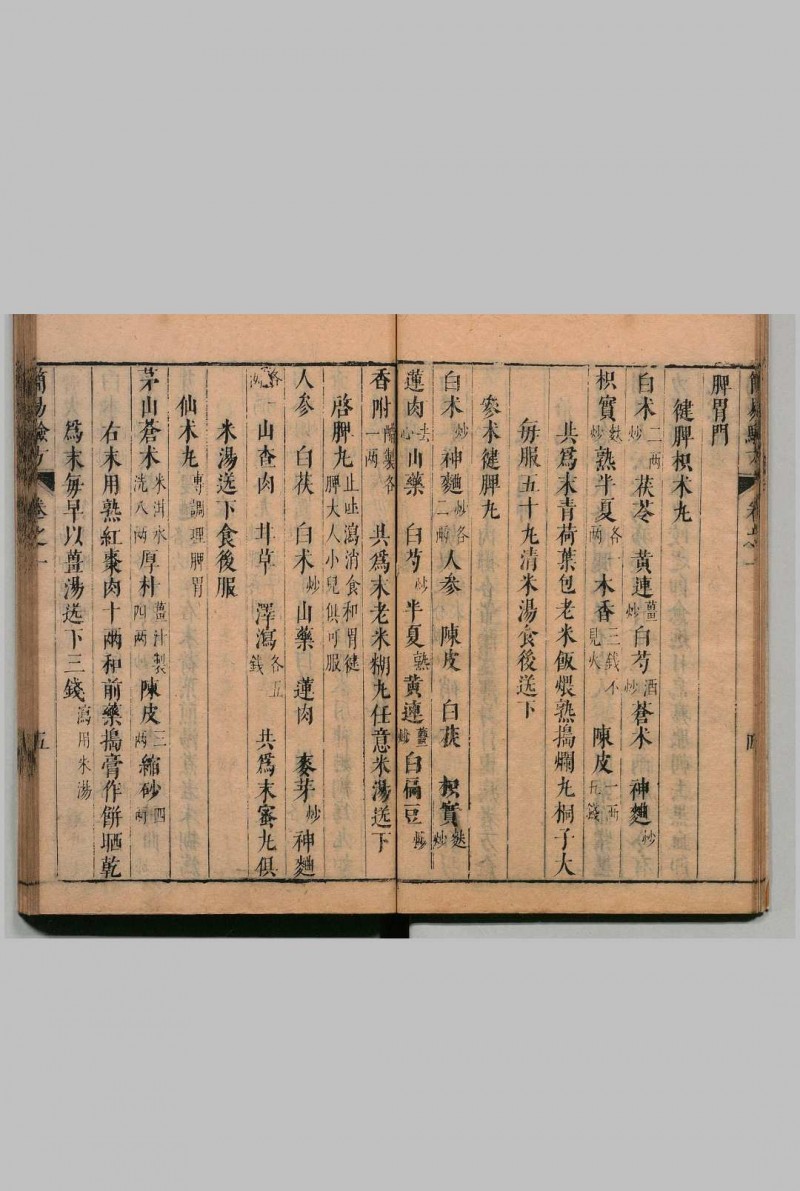 脾胃門
健脾枳朮丸
白朮二兩炒 茯苓 黃連薑炒 白芍酒炒 蒼朮 神麯炒
枳實麩炒 熟半夏各一兩 木香三錢不見火 陳皮一兩五錢
共爲末青荷葉包老米飯煨熟搗爛丸桐子大
每服五十丸清米湯食後送下
參朮健脾丸
白朮炒 神麯炒各二兩 人參 陳皮 白茯 枳實麩炒
蓮肉去心 山藥 白芍炒 半夏熟 黃連薑炒 白扁豆炒
香附醋製各一兩 共爲末老米糊丸任意米湯送下
啓脾丸止吐瀉消食和胃健脾大人小兒俱可服
人參 白茯 白朮炒 山藥 蓮肉 麥芽炒 神麯
各一兩 山查肉 甘草 澤瀉各五錢 共爲末蜜丸俱
米湯送下食後服
仙朮丸專調理脾胃
茅山蒼朮米泔水洗八兩 厚朴薑汁製四兩 陳皮三兩 縮砂四兩
右末用熟紅棗肉十兩和前藥搗膏作餅晒乾
爲末每早以薑湯送下三錢瀉用米湯
簡易驗方 卷之一 五